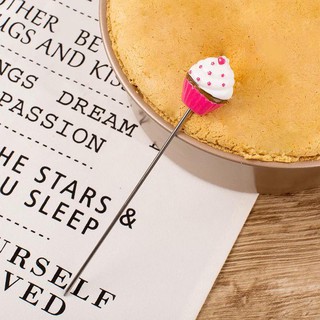 OTHER BE
HUGS AND KIS
NGS DREAM
PASSION
HE STARS &
U SLEEP
URSELF
VED